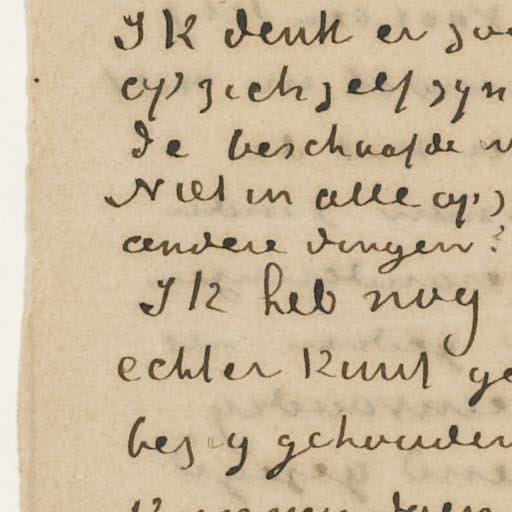 Ik denk er zoo
op zich zelf zyn
de beschaafde
Niet in alle op z
andere dingen?
Ik heb nog
echter kunt ge
bezig gehouden